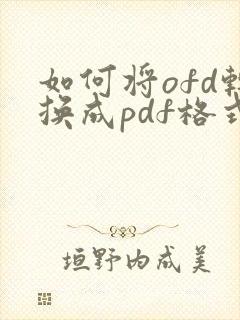 如何将ofd转
换成pdf格式
垣野内成美